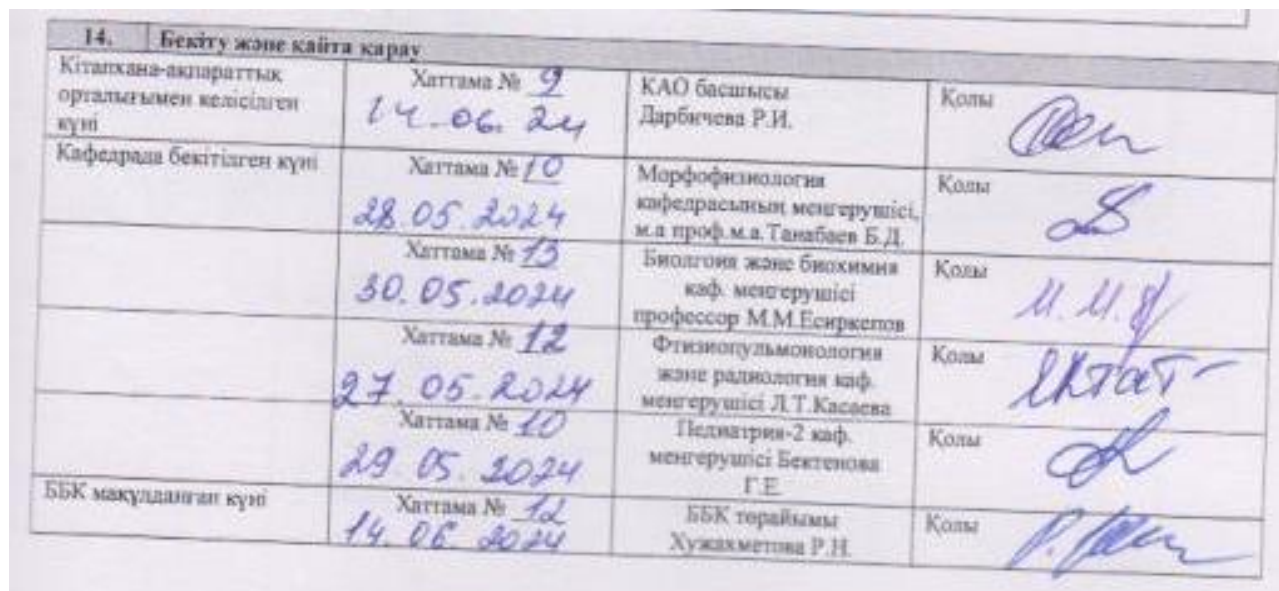 14. Бекіту және қайта қарау
Кітапхана-ақпараттық
орталығымен келісілген
күні
Хаттама № 9
14.06.24
КАО басшысы
Дарбичева Р.И.
Қолы
Кафедрада бекітілген күні
Хаттама № 10
28.05.2024
Морфофизиология
кафедрасының меңгерушісі,
м.а проф.м.а.Танабаев Б.Д.
Қолы
Хаттама № 13
30.05.2024
Биология және биохимия
каф. меңгерушісі
профессор М.М.Есиркепов
Қолы
Хаттама № 12
27.05.2024
Фтизиопульмонология
және радиология каф.
меңгерушісі Л.Т.Касаева
Қолы
Хаттама № 10
29.05.2024
Педиатрия-2 каф.
меңгерушісі Бектенова
Г.Е.
Қолы
ББК мақұлданған күні
Хаттама № 12
14.06.2024
ББК төрайымы
Хужахметова Р.Н.
Қолы